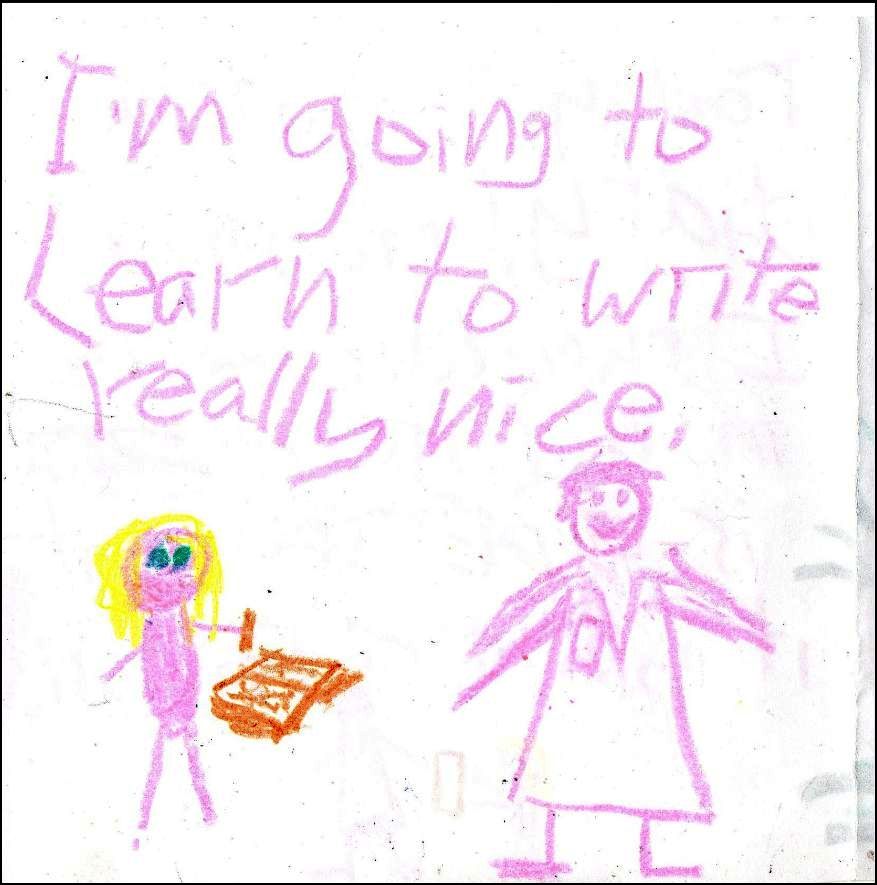 I'm going to
Learn to write
really nice.